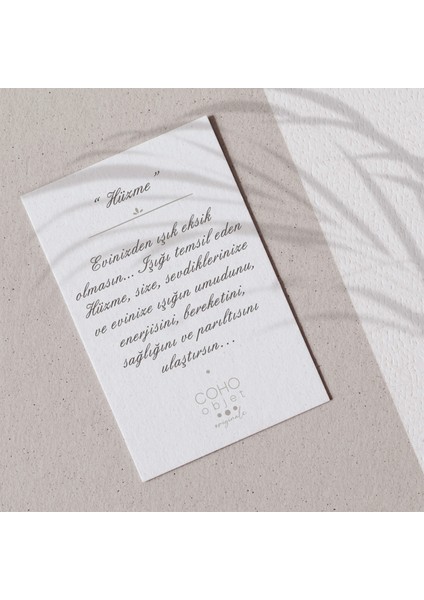 “ Hüzme ”
Evinizden ışık eksik
olmasın... Işığı temsil eden
Hüzme, size, sevdiklerinize
ve evinize ışığın umudunu,
enerjisini, bereketini,
sağlığını ve parıltısını
ulaştırsın...
COHO
objet
originals